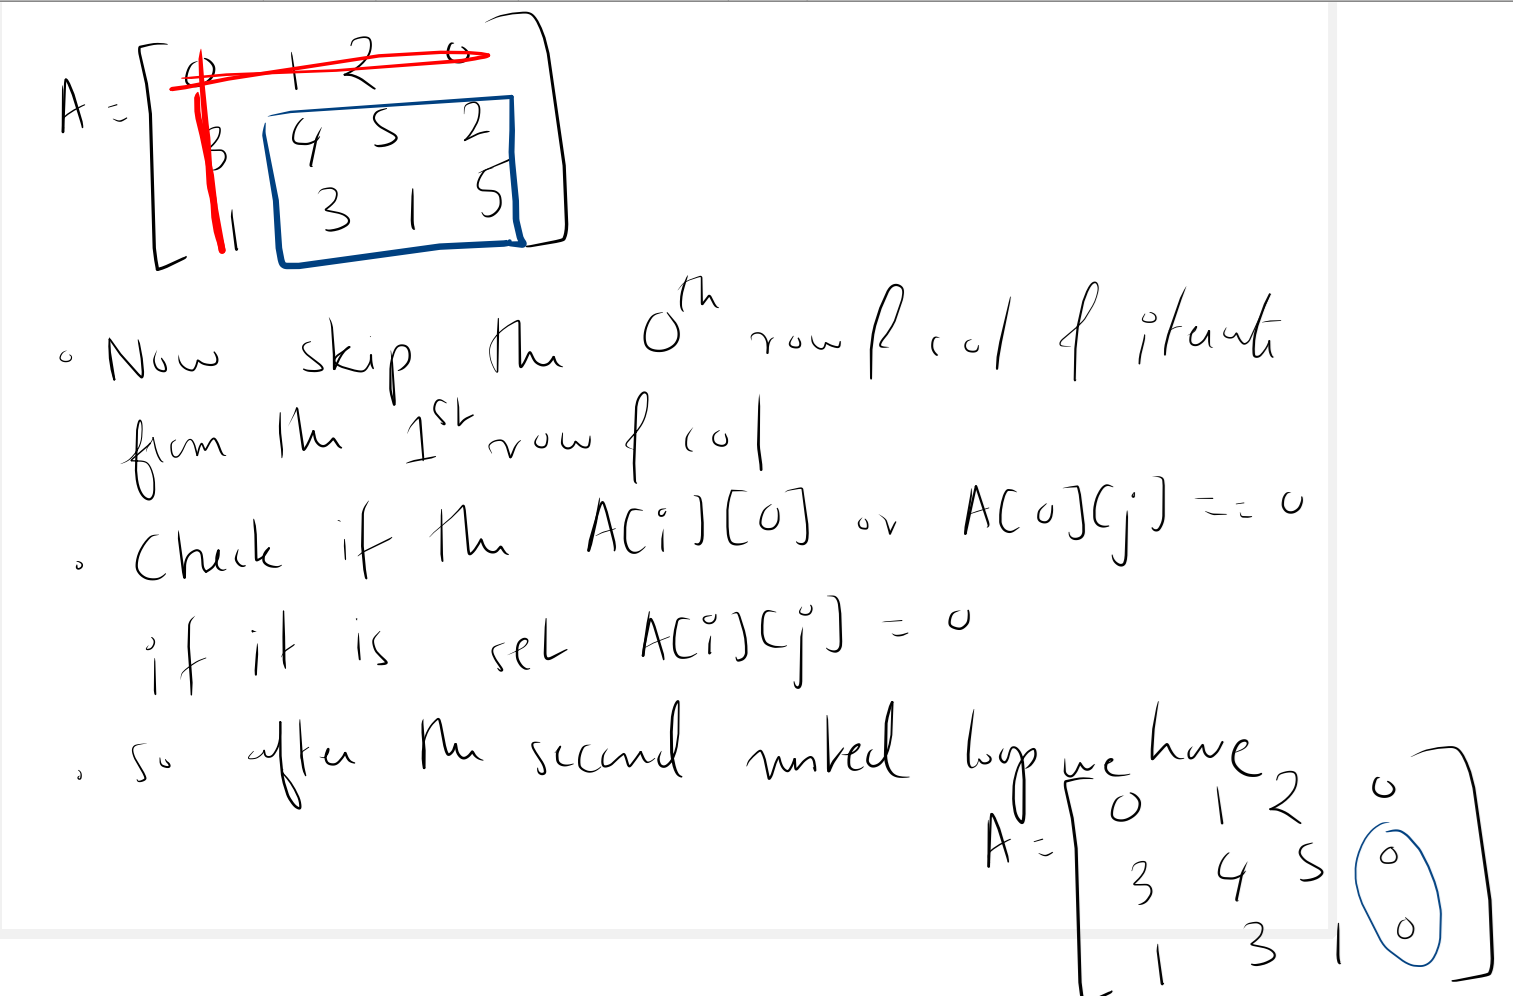 0 1 2 0
A = 3 4 5 2
1 3 1 5
Now skip the 0th row & col & iterate
from the 1st row & col
Check if the A[i][0] or A[0][j] == 0
if it is set A[i][j] = 0
So after the second nested loop we have
0 1 2 0
A = 3 4 5 0
1 3 1 0